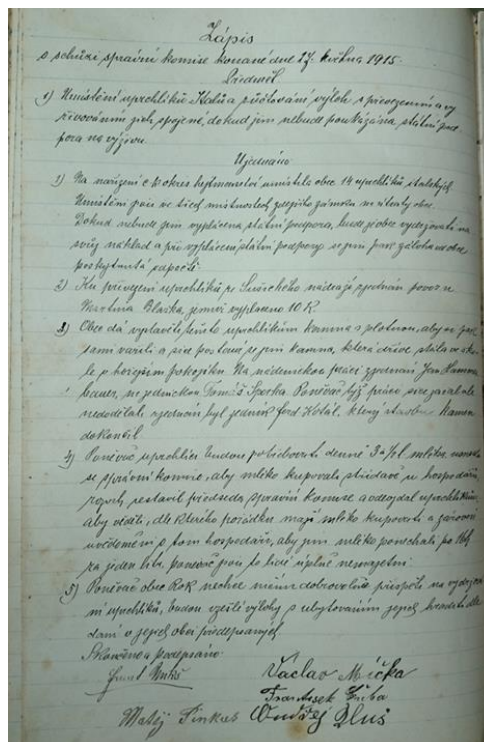 Zápis
o schůzi správní komise konané dne 27. května 1915.
Předmět.
1) Umístění uprchlíků Italů a zúčtování výloh s přivezením a vy
živováním jich spojené, dokud jim nebude poukázána státní pod
pora na výživu.
Ujednáno
1) Na nařízení c k okres. hejtmanství umístila obec 14 uprchlíků italských.
Umístění jsou ve třech místnostech zdejšího zámku na útraty obce.
Dokud nebude jim vyplácena státní podpora, bude je obec vydržovati na
svůj náklad a při vyplácení státní podpory se jim pak záloha od obce
poskytnutá započte.
2) Ku přivezení uprchlíků ze Sušického nádraží zjednán povoz u
Martina Blažka, jemuž vyplaceno 10 K.
3) Obec dá vystavěti těmto uprchlíkům kamna s plotnou, aby si
sami vařili a sice postaví se jim kamna, která dříve stála ve ško
le v hořejším pokojíku. Na nádenickou práci zjednán Jan
Tomáš Sperka. Poněvač týž práci sice začal ale
nedodělal, zjednán byl zedník ferd Kotál, který stavbu kamen
dokončil
4) Poněvač uprchlíci budou potřebovati denně 3 a ½ l mléka,
se správní komise, aby mléko kupovali střídavě u hospodářů,
sestavil předseda správní komise a odevzdal uprchlíkům
aby věděli, dle kterého pořádku mají mléko kupovati a zároveň
uvědomění s tom hospodáři, aby jim mléko ponechali po 16 h
za jeden litr, poněvač jsou to lidé úplně nemajetní.
5) Poněvač obec Rok nechce ničím dobrovolně přispěti na vydržo
vání uprchlíků, budou vzešlé výlohy s ubytováním jejich hraditi dle
daní v jejich obci předepsaných.
Skončeno a podepsáno.
Václav Míčka
František
Matěj Pinkas Ondřej Pluś